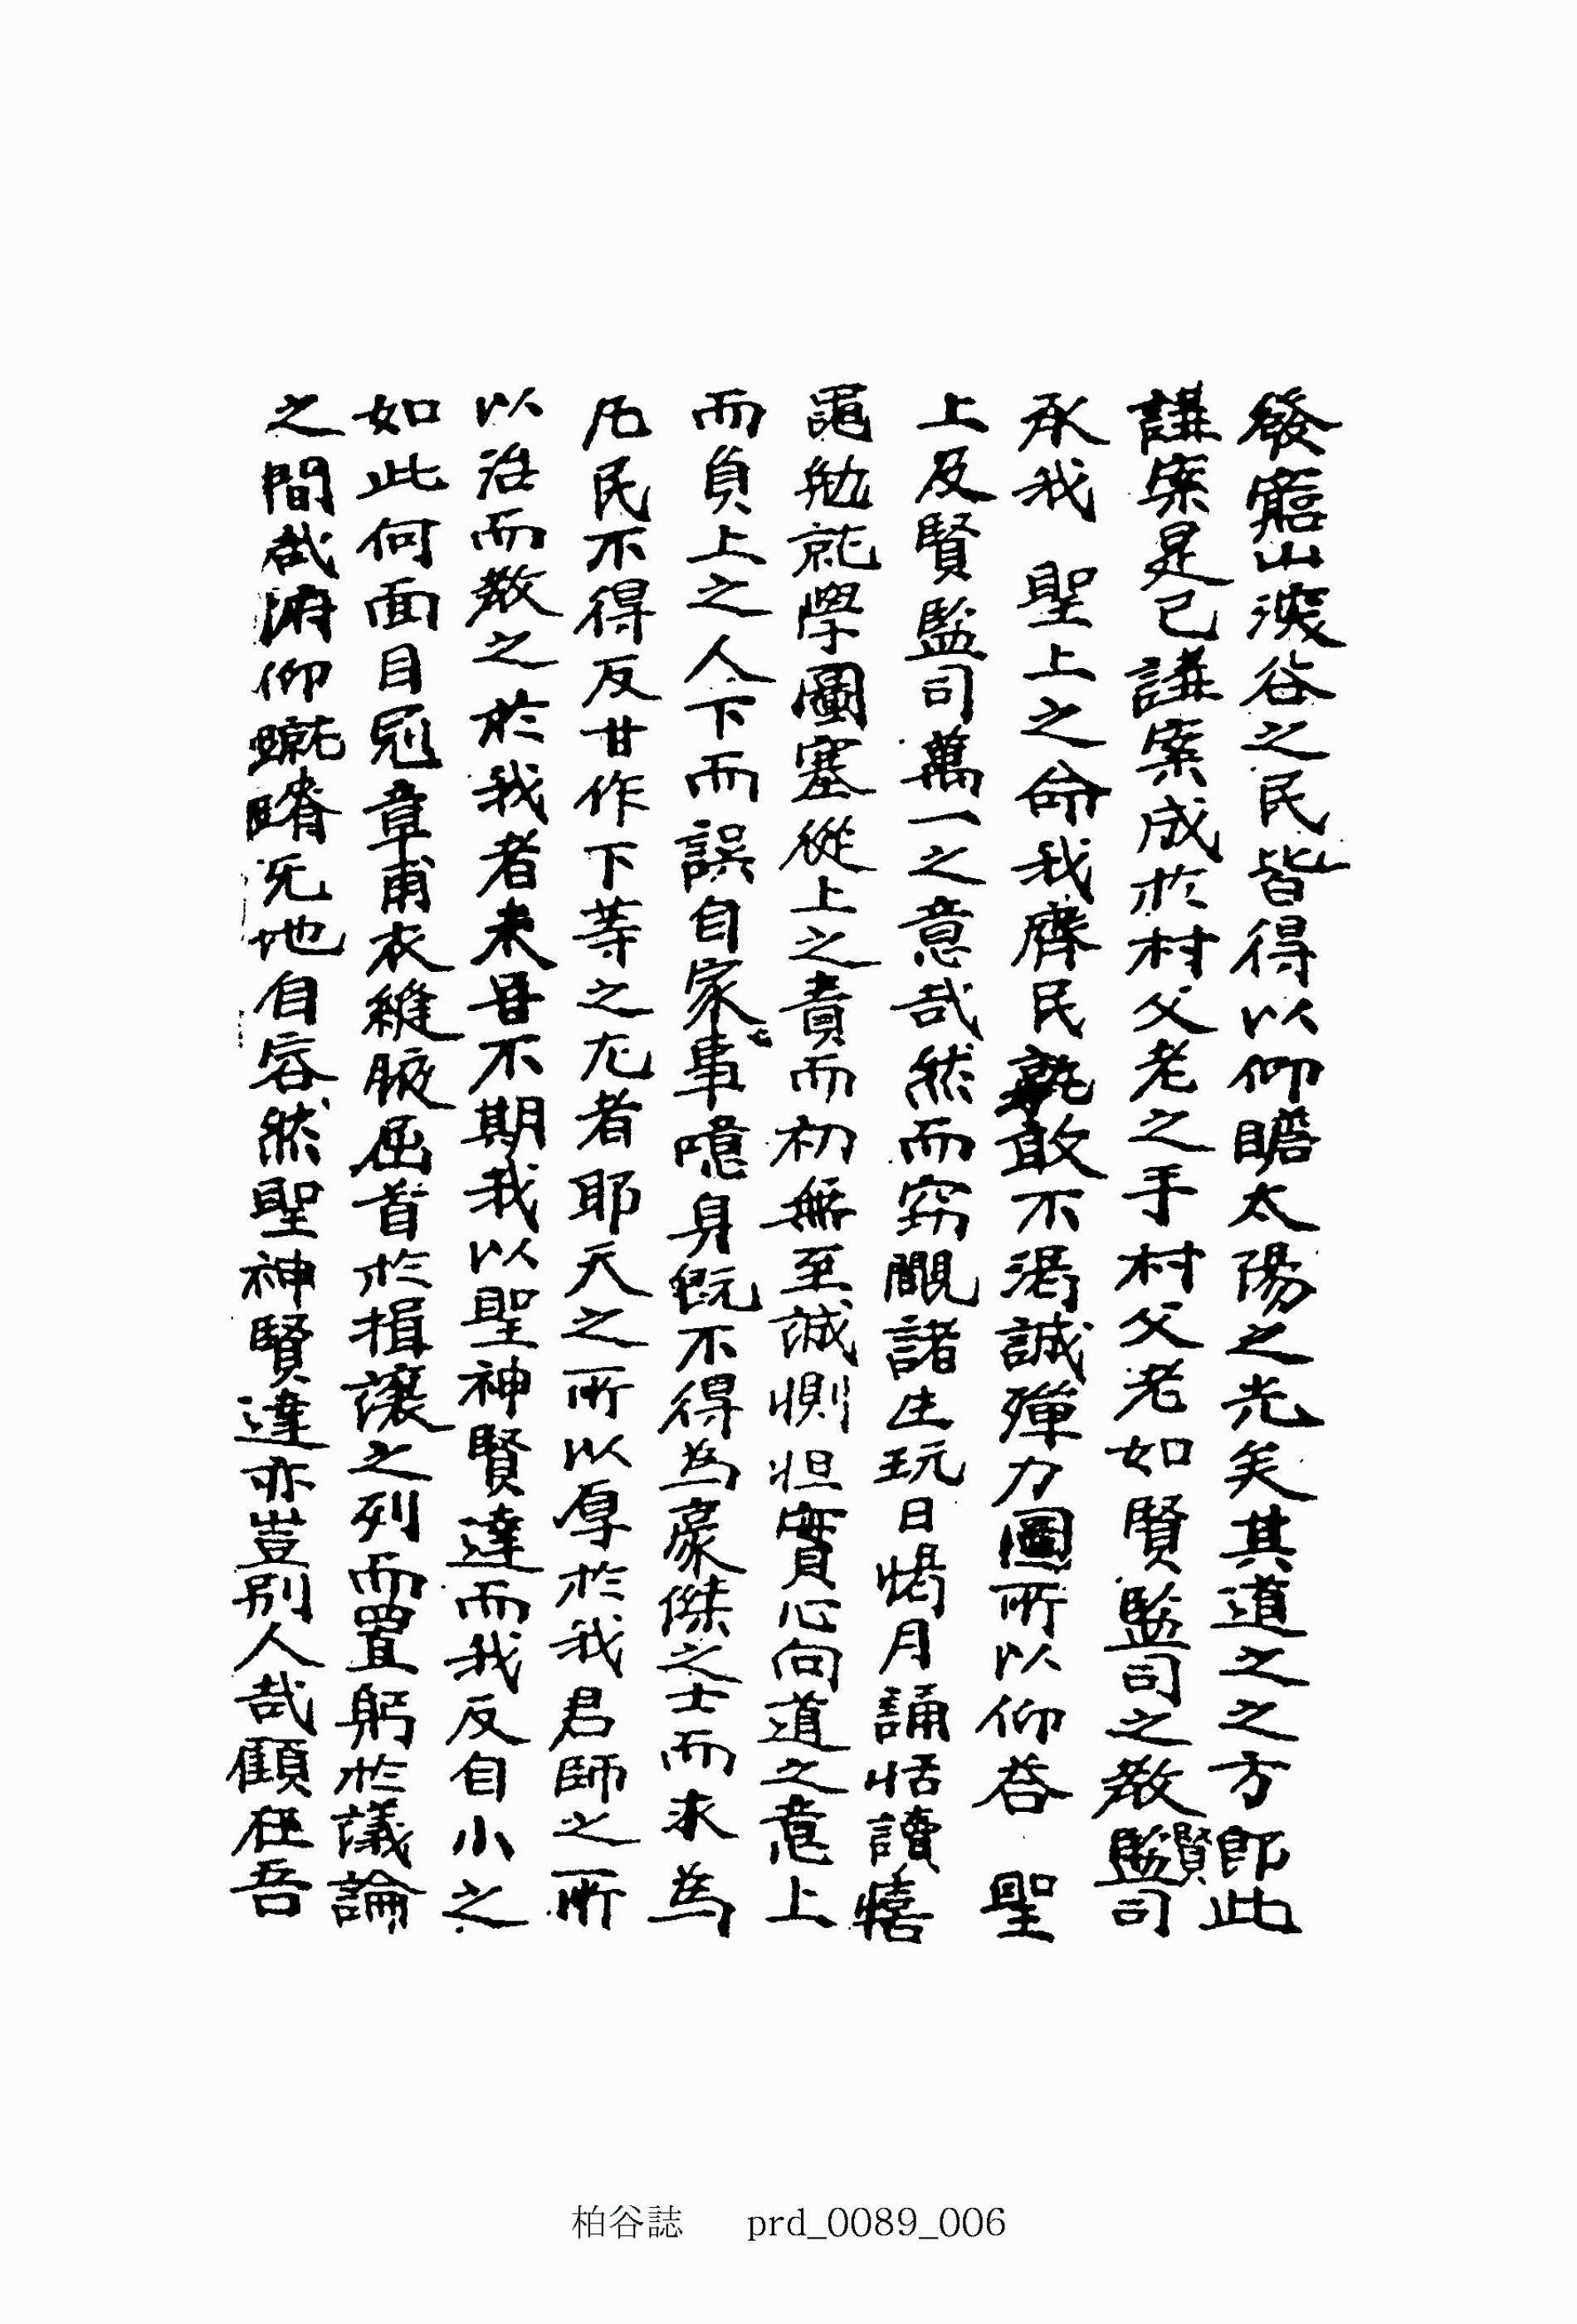 發窮山深谷之民皆得以仰瞻太陽之光矣其道之之方卽此
講案是已講案成於村父老之手村父老如賢監司之敎賢監司
承我 聖上之命我齊民孰敢不渴誠殫力圖所以仰答 聖
上及賢監司萬一之意哉然而窃覵諸生玩日愒月誦恬讀憘
黽勉就學圖塞從上之責而初無至誠惻怛實心向道之意上
而負上之人下而誤自家事噫身旣不得為豪傑之士而求為
凡民不得反甘作下等之尤者耶天之所以厚於我君師之所
以治而敎之於我者未甞不期我以聖神賢達而我反自小之
如此何面目冠章甫衣縫腋屈首於揖讓之列而置躬於議論
之間哉俯仰踧踖無地自容然聖神賢達亦豈別人哉顧在吾
柏谷誌 prd_0089_006